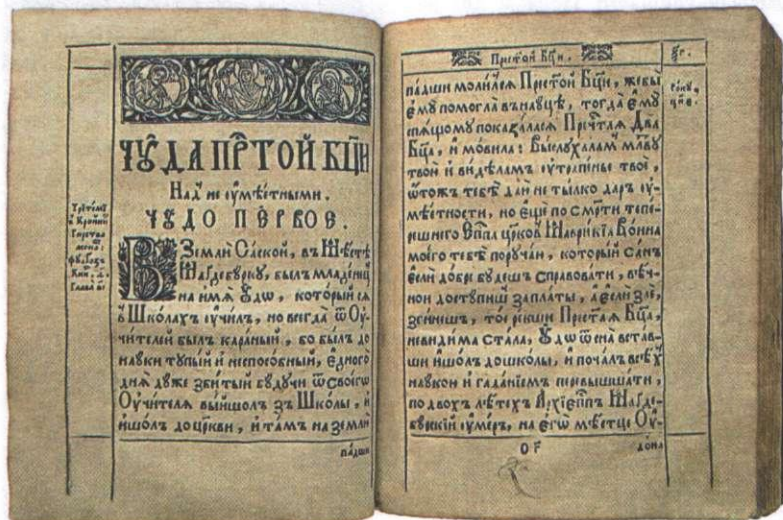 ЧУ́ДА ПР҃ТОЙ БЦ҃И
Над̾ не ᲂумѣетными.
ЧУДО ПЕ́РВОЕ.
В Земли Саской, въ Мѣстѣ
Магдебурку, былъ младенец
на имѧ Удѡ, который сѧ
у Школахъ ᲂучи́лъ, но всегда ѿ Оу-
чителей былъ караный, бо былъ до
науки тупый и неспособный, едного
днѧ дуже збитый будучи ѿ своегѡ
Оучителѧ вы́йшолъ зъ Школы, и
ишо́лъ до цр҃кви, и та́мъ на земли
па́дши
Прест҃ой Бц҃и.
па́дши моли́лсѧ Прест҃ой Бц҃и, жебы
ему помогла въ нау́цѣ, тогда ему
спѧщому показа́ласѧ Преч҃таѧ Дв҃а
Бц҃а, и мо́вила: Выслу́халамъ мл҃тву
твою и ви́дѣламъ ᲂутрапе́нье твое,
ѿто́жъ тебѣ дай не ты́лко даръ ᲂу-
мѣетности, но еще по см҃рти тепе-
решнего Еп҃па цр҃кви Маврикіѧ Во́ина
моего тебѣ поруча́ю, который са́нъ
если добре будешъ справовати, вѣч-
нои достꙋпишъ заплаты, а если зле,
зги́нешъ, то́е рекши Прест҃аѧ Бц҃а,
невидима ста́ла, Удѡ ѿ сна встав-
ши ишо́лъ до шко́лы, и поча́лъ всѣхъ
наукою и гада́ніемъ превышшати,
по двохъ лѣтехъ Архіеп҃пъ Магде-
бурскій ᲂуме́ръ, на егѡ мѣстце Оу-
О҃Г
дона